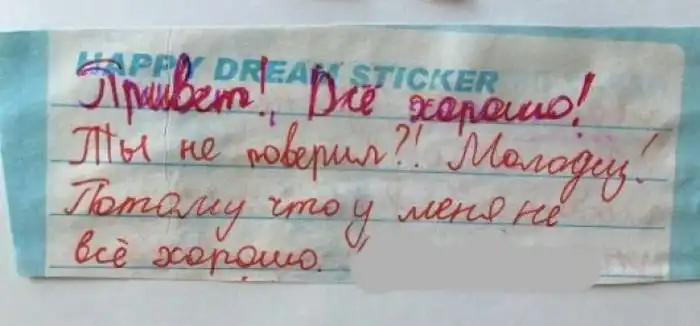 HAPPY DREAM STICKER
Привет!, Всё хорошо!
Ты не поверил?! Молодец!
Потому что у меня не
всё хорошо.